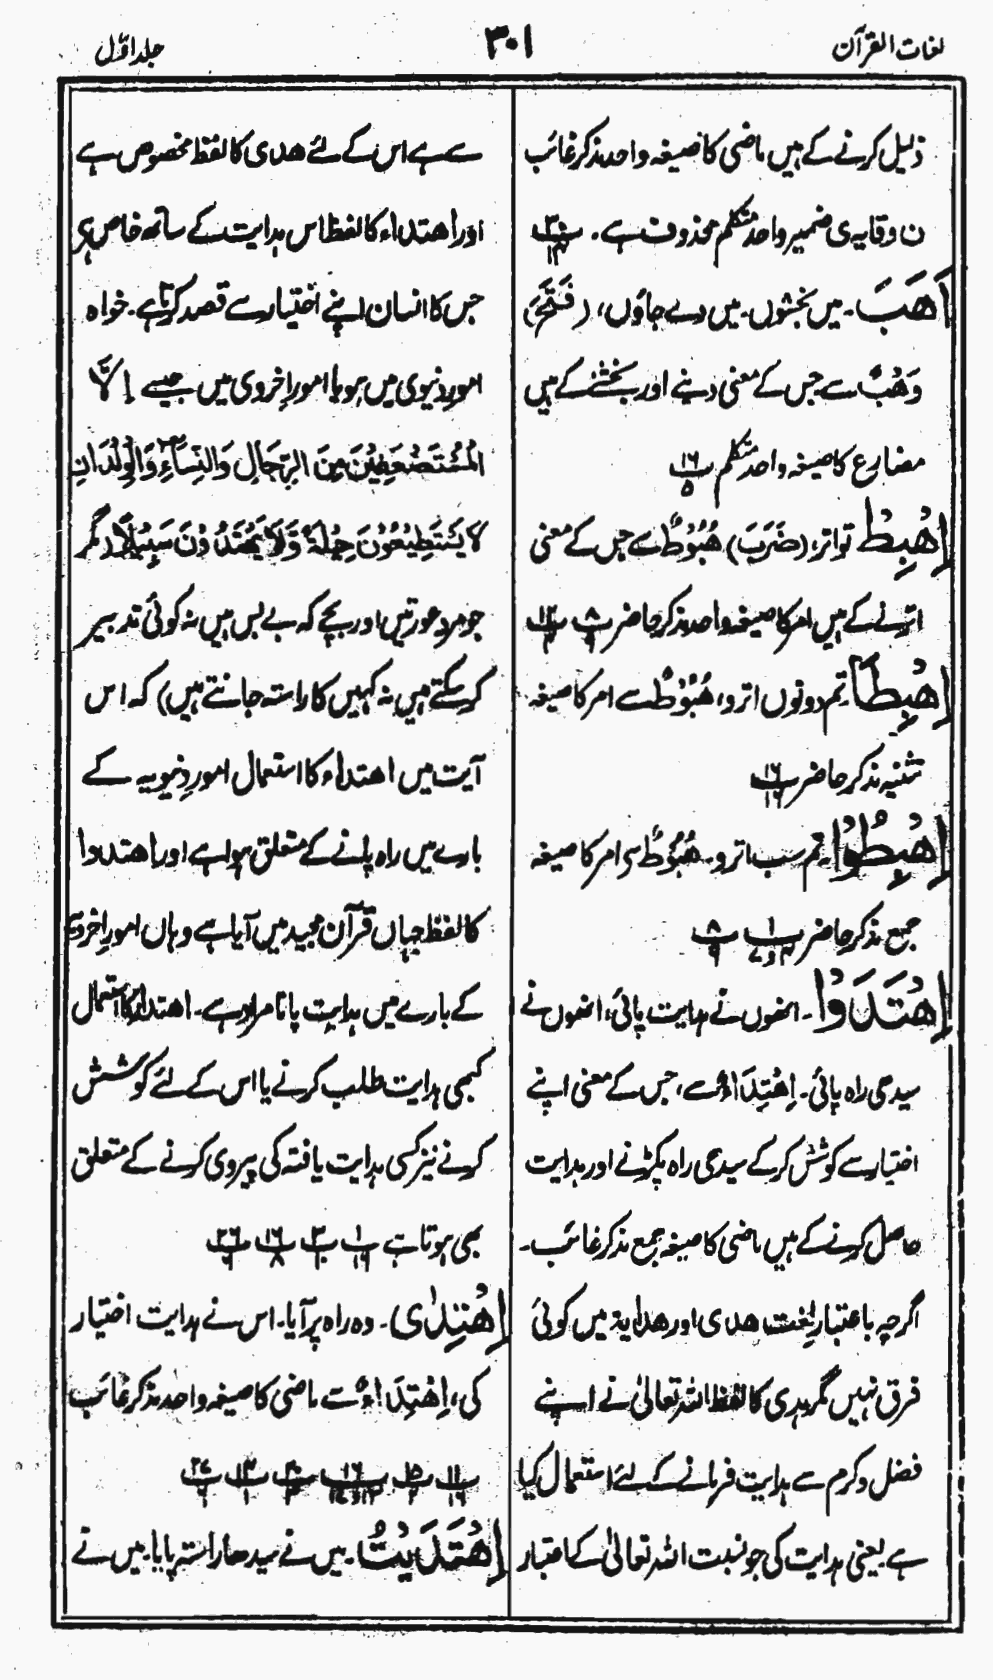 لغات القرآن
۳۰۱
جلد اوّل
ذلیل کرنے کے ہیں ماضی کا صیغہ واحد مذکر غائب
ن وقایہ ی ضمیر واحد متکلم محذوف ہے۔
اَهَبَ۔ میں بخشوں۔ میں دے جاؤں، (فَتَحَ)
وَهْبٌ سے جس کے معنی دینے اور بخشنے کے ہیں
مضارع کا صیغہ واحد متکلم پ ۱۶ ۵
اِهْبِطْ تو اتر، (ضَرَبَ) هُبُوْطٌ سے جس کے معنی
اترنے کے ہیں امر کا صیغہ واحد مذکر حاضر
اِهْبِطَا۔ تم دونوں اترو، هُبُوْطٌ سے امر کا صیغہ
تثنیہ مذکر حاضر پ ۱۶ ۱۶
اِهْبِطُوْا۔ تم سب اترو۔ هُبُوْطٌ سے امر کا صیغہ
جمع مذکر حاضر پ ۱ ۴ و ۷ پ ۸ ۹
اِهْتَدَوْا۔ انھوں نے ہدایت پائی، انھوں نے
سیدھی راہ پائی۔ اِهْتِدَاءٌ سے، جس کے معنی اپنے
اختیار سے کوشش کر کے سیدھی راہ پکڑنے اور ہدایت
حاصل کرنے کے ہیں ماضی کا صیغہ جمع مذکر غائب۔
اگرچہ باعتبار لغت ھدی اور ھدایۃ میں کوئی
فرق نہیں مگر ہدی کا لفظ اللہ تعالیٰ نے اپنے
فضل و کرم سے ہدایت فرمانے کے لئے استعمال کیا
ہے یعنی ہدایت کی جو نسبت اللہ تعالیٰ کے اعتبار
سے ہے اس کے لئے ھدی کا لفظ مخصوص ہے
اور اھتداء کا لفظ اس ہدایت کے ساتھ خاص ہی
جس کا انسان اپنے اختیار سے قصد کرتا ہے۔ خواہ
امور دنیوی میں ہو یا امور اخروی میں جیسے اِلَّا
الْمُسْتَضْعَفِيْنَ مِنَ الرِّجَالِ وَالنِّسَآءِ وَالْوِلْدَانِ
لَا يَسْتَطِيْعُوْنَ حِيْلَةً وَّلَا يَهْتَدُوْنَ سَبِيْلًا (مگر
جو مرد عورتیں اور بچے کہ بے بس ہیں نہ کوئی تدبیر
کر سکتے ہیں نہ کہیں کا راستہ جانتے ہیں) کہ اس
آیت میں اھتداء کا استعمال امور دنیویہ کے
بارے میں راہ پانے کے متعلق ہوا ہے اور اھتدوا
کا لفظ جہاں قرآن مجید میں آیا ہے وہاں امور اخرویہ
کے بارے میں ہدایت پانا مراد ہے۔ اھتداء کا استعمال
کبھی ہدایت طلب کرنے یا اس کے لئے کوشش
کرنے نیز کسی ہدایت یافتہ کی پیروی کرنے کے متعلق
بھی ہوتا ہے
اِهْتَدٰى۔ وہ راہ پر آیا۔ اس نے ہدایت اختیار
کی، اِهْتِدَاءٌ سے ماضی کا صیغہ واحد مذکر غائب
اِهْتَدَيْتُ۔ میں نے سیدھا راستہ پایا۔ میں نے